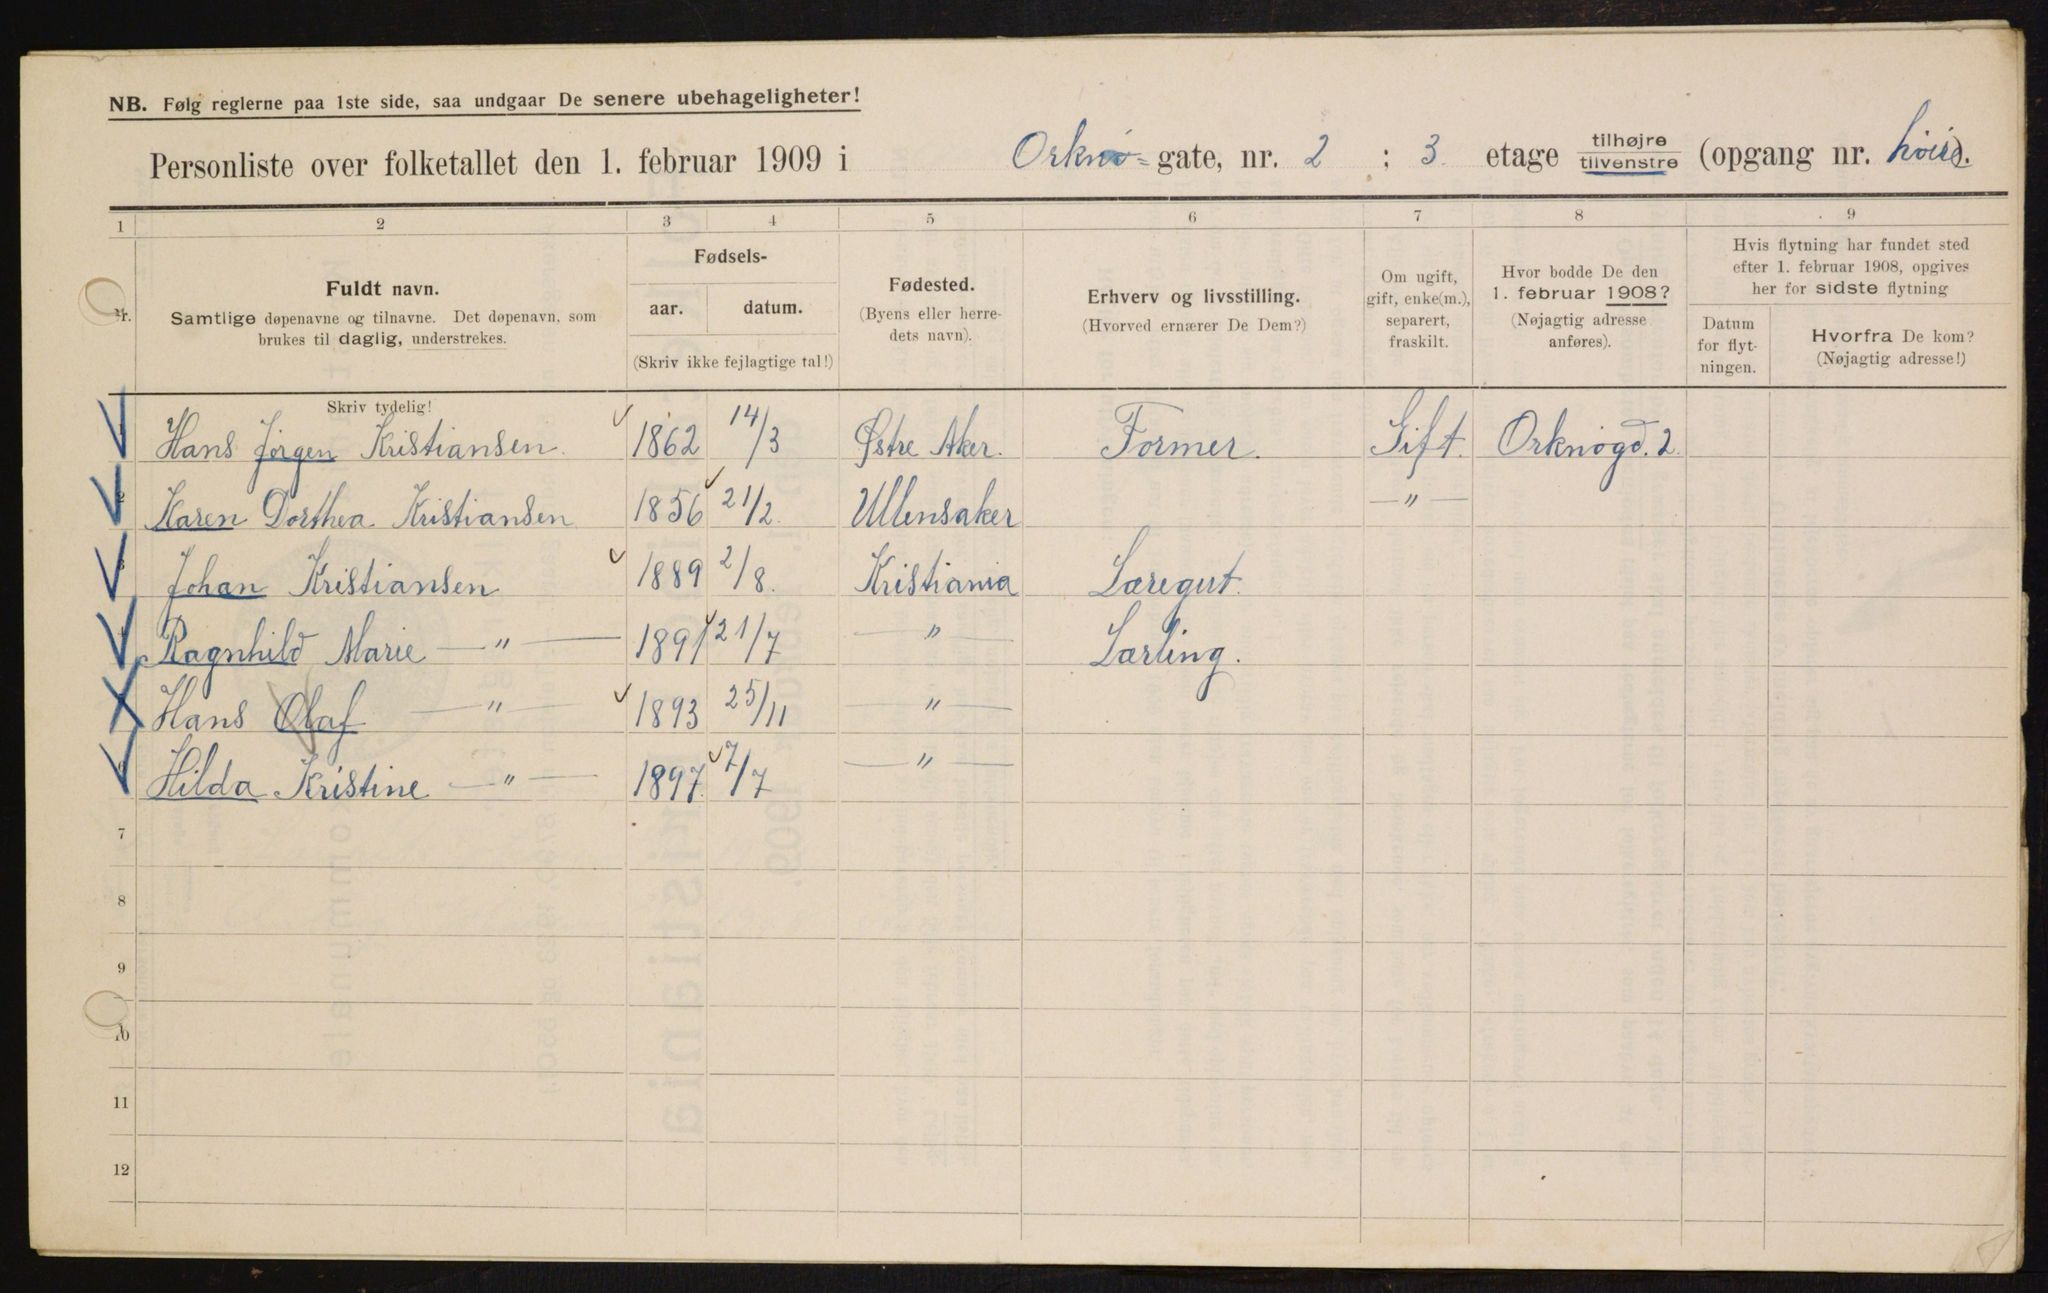 NB. Følg reglerne paa 1ste side, saa undgaar De senere ubehageligheter!
Personliste over folketallet den 1. februar 1909 i Orknø- gate, nr. 2 : 3 etage tilhøjre tilvenstre (opgang nr. ).
1 2 3 4 5 6 7 8 9
Nr.
Fuldt navn.
Samtlige døpenavne og tilnavne. Det døpenavn, som
brukes til daglig, understrekes.
Skriv tydelig!
Fødsels-
aar. datum.
(Skriv ikke fejlagtige tal!)
Fødested.
(Byens eller herre-
dets navn).
Erhverv og livsstilling.
(Hvorved ernærer De Dem?)
Om ugift,
gift, enke(m.),
separert,
fraskilt.
Hvor bodde De den
1. februar 1908?
(Nøjagtig adresse
anføres).
Hvis flytning har fundet sted
efter 1. februar 1908, opgives
her for sidste flytning
Datum
for flyt-
ningen.
Hvorfra De kom?
(Nøjagtig adresse!)
Hans Jörgen Kristiansen. 1862 14/3 Østre Aker. Former. Gift. Orknøgd. 2.
Karen Dorthea Kristiansen 1856 21/2. Ullensaker — " —
Johan Kristiansen 1889 2/8. Kristiania Læregut.
Ragnhild Marie — " — 1891 21/7 — " — Lærling.
Hans Olaf — " — 1893 25/11 — " —
Hilda Kristine — " — 1897. 7/7 — " —
7
8
9
10
11
12